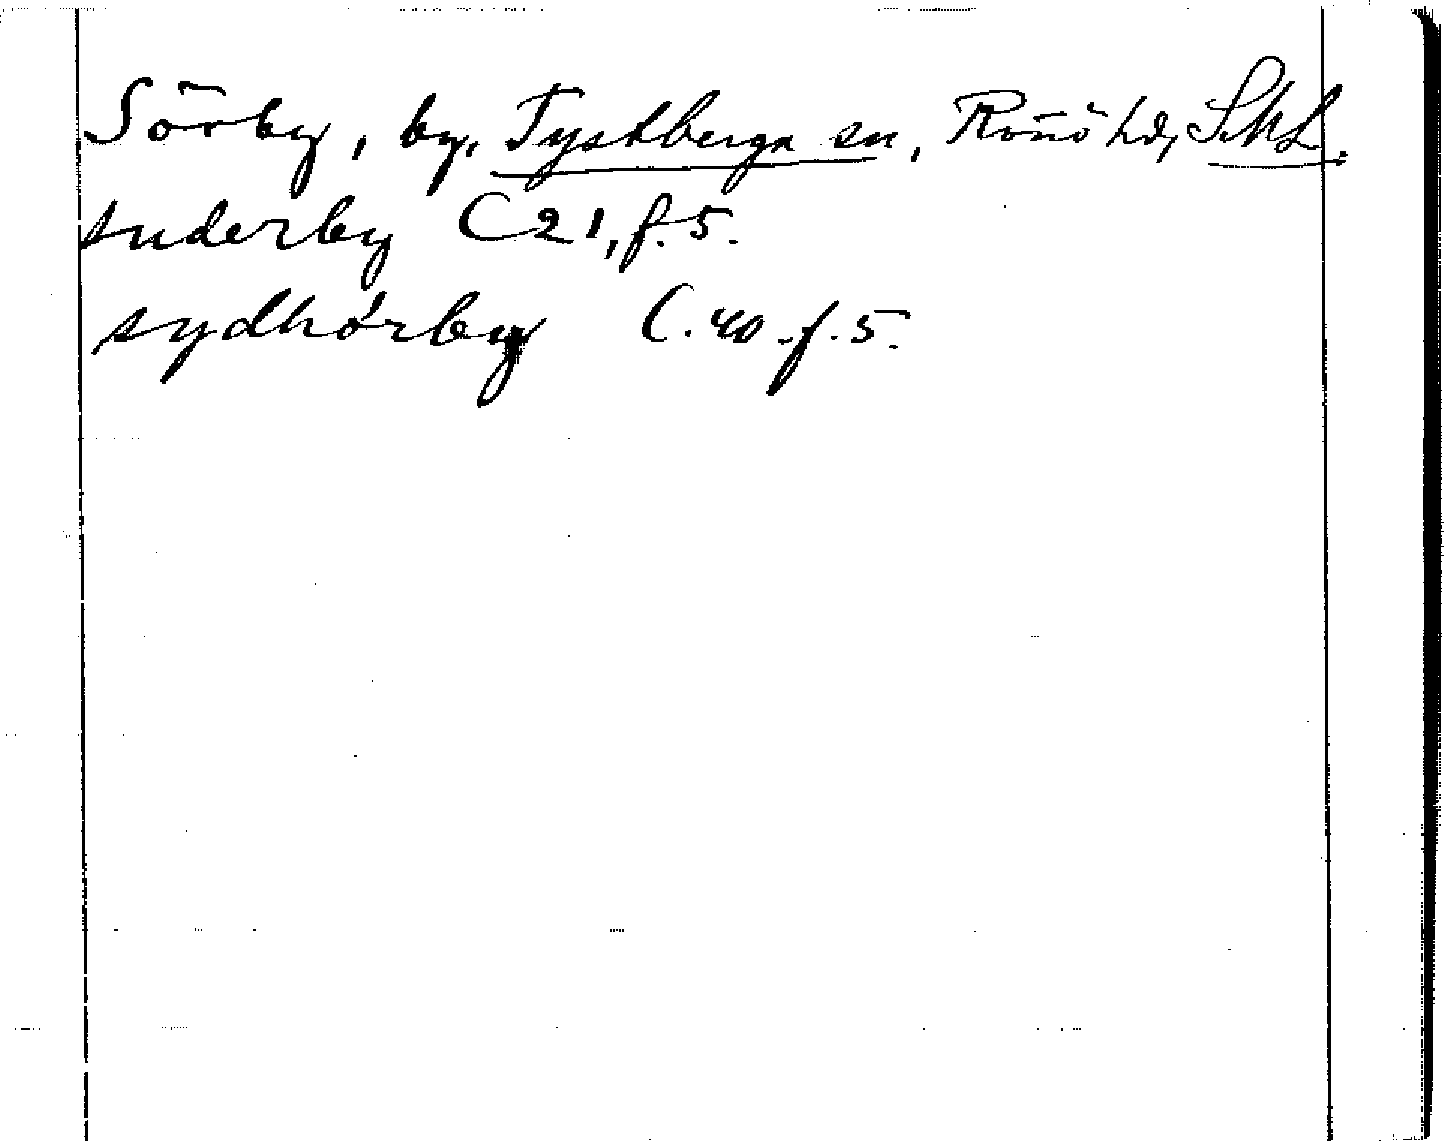 Sörby, by, Tystberga sn, Rönö hd, Sml.
suderby C 21, f. 5.
sydhórby C. 40. f. 5.